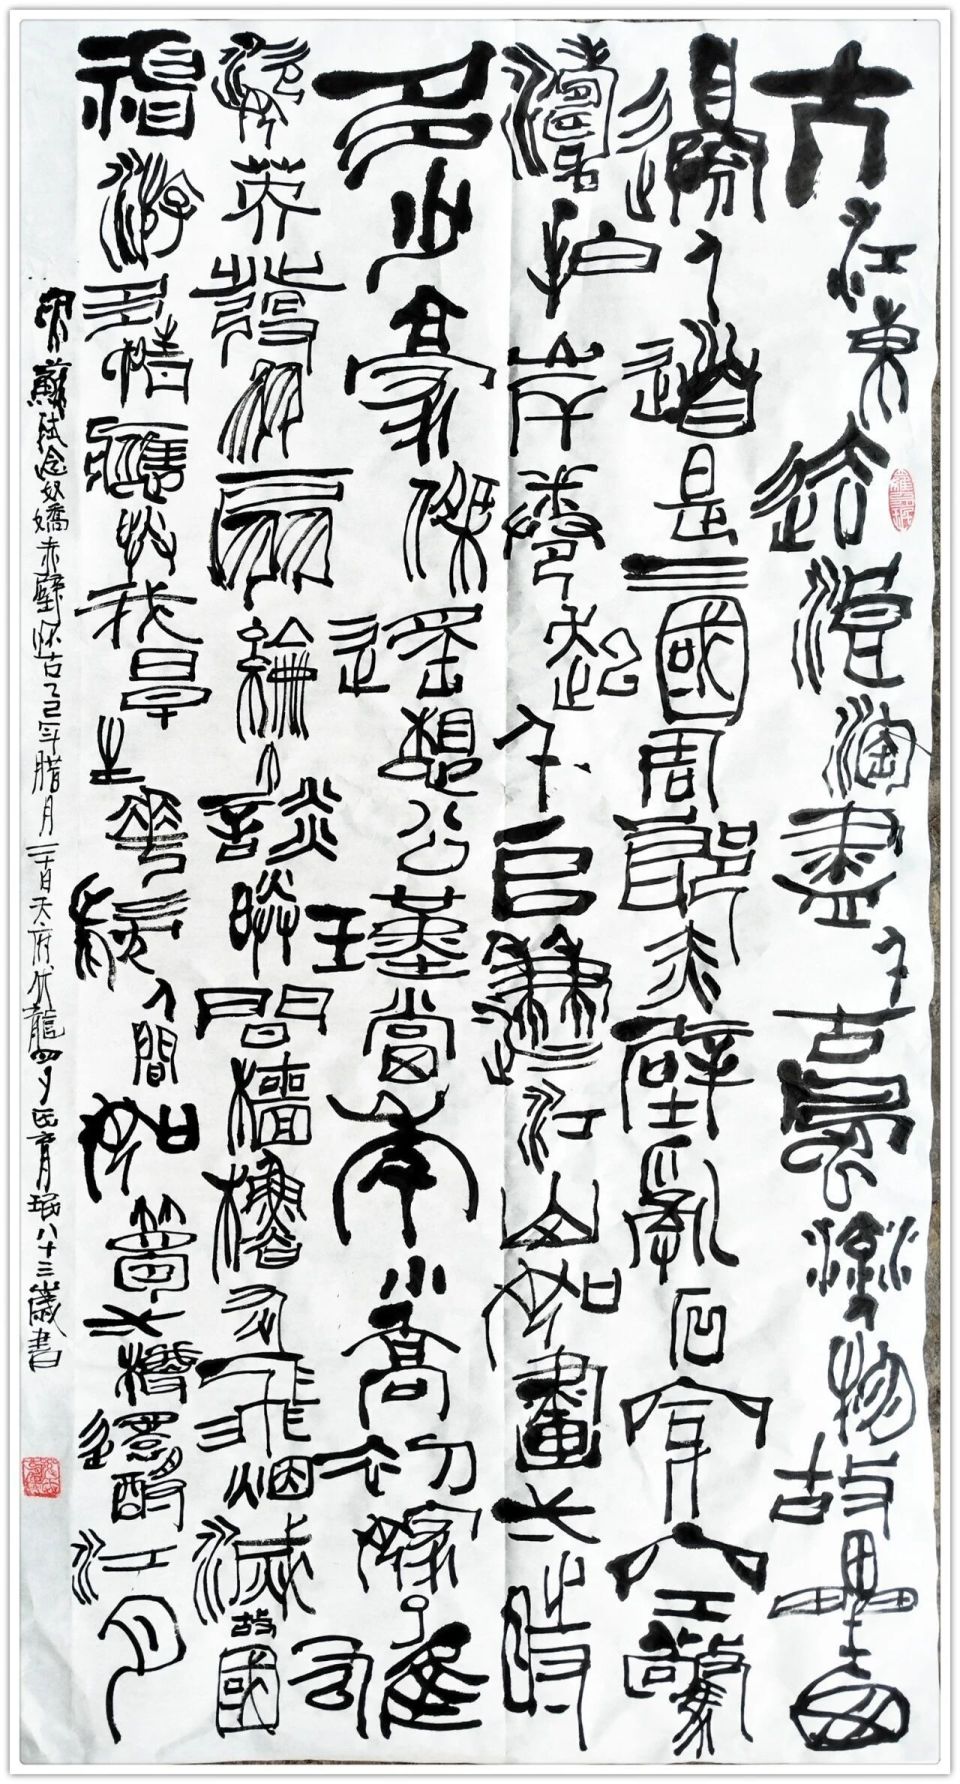 大江東去浪淘盡千古風流人物故壘西
邊人道是三國周郎赤壁亂石穿空驚
濤拍岸卷起千堆雪江山如畫一時
多少豪傑遙想公瑾當年小喬初嫁了雄
姿英發羽扇綸巾談笑間檣櫓灰飛烟滅故國
神游多情應笑我早生華髮人間如夢一樽還酹江月
宋蘇軾念奴嬌赤壁懷古乙巳年腊月二十日天府伏龍民育珉八十三歲書